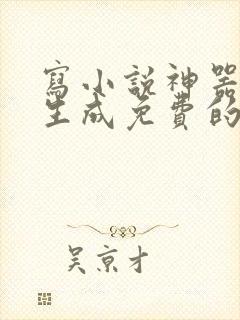 寫小說神器
生成免費的
吳京才